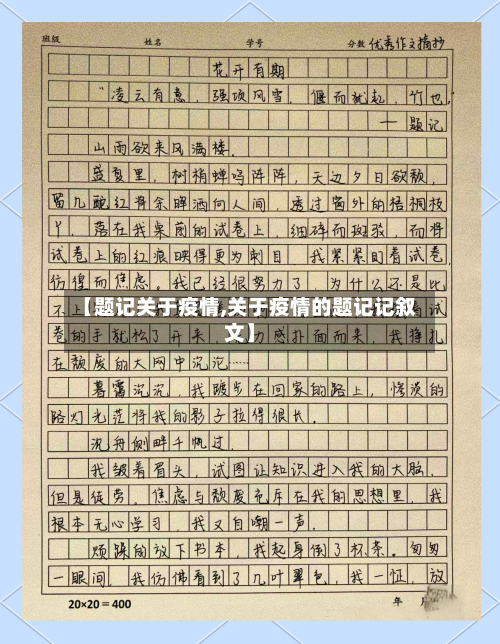 班级 姓名 学号 分数 优秀作文摘抄
花开有期
“凌云有意，强项风雪，偃而犹起，竹也。”
— 题记
山雨欲来风满楼。
盛夏里，树梢蝉鸣阵阵，天边夕日欲颓，
留几酡红将余晖洒向人间，透过窗外的梧桐枝
丫，落在我桌前的试卷上，细碎而斑驳，而将
试卷上的红痕映得更为刺目。我紧紧盯着试卷，
彷徨而焦虑。我已经很努力了，为什么还是比
不上
【题记关于疫情,关于疫情的题记记叙
文】
卷的手就松了开来，力感扑面而来，我挣扎
在颓废的大网中沉沦……
暮霭沉沉，我踱步在回家的路上，惨淡的
路灯光茫将我的影子拉得很长。
沉舟侧畔千帆过，
我皱着眉头，试图让知识进入我的大脑，
但是疲劳、焦虑与颓废充斥在我的思想里，我
根本无心学习，我又自嘲一声。
烦躁的放下书本，我起身倒了杯茶。匆匆
一眼间，我仿佛看到了几叶翠色，我一怔，放
20×20=400 年 月